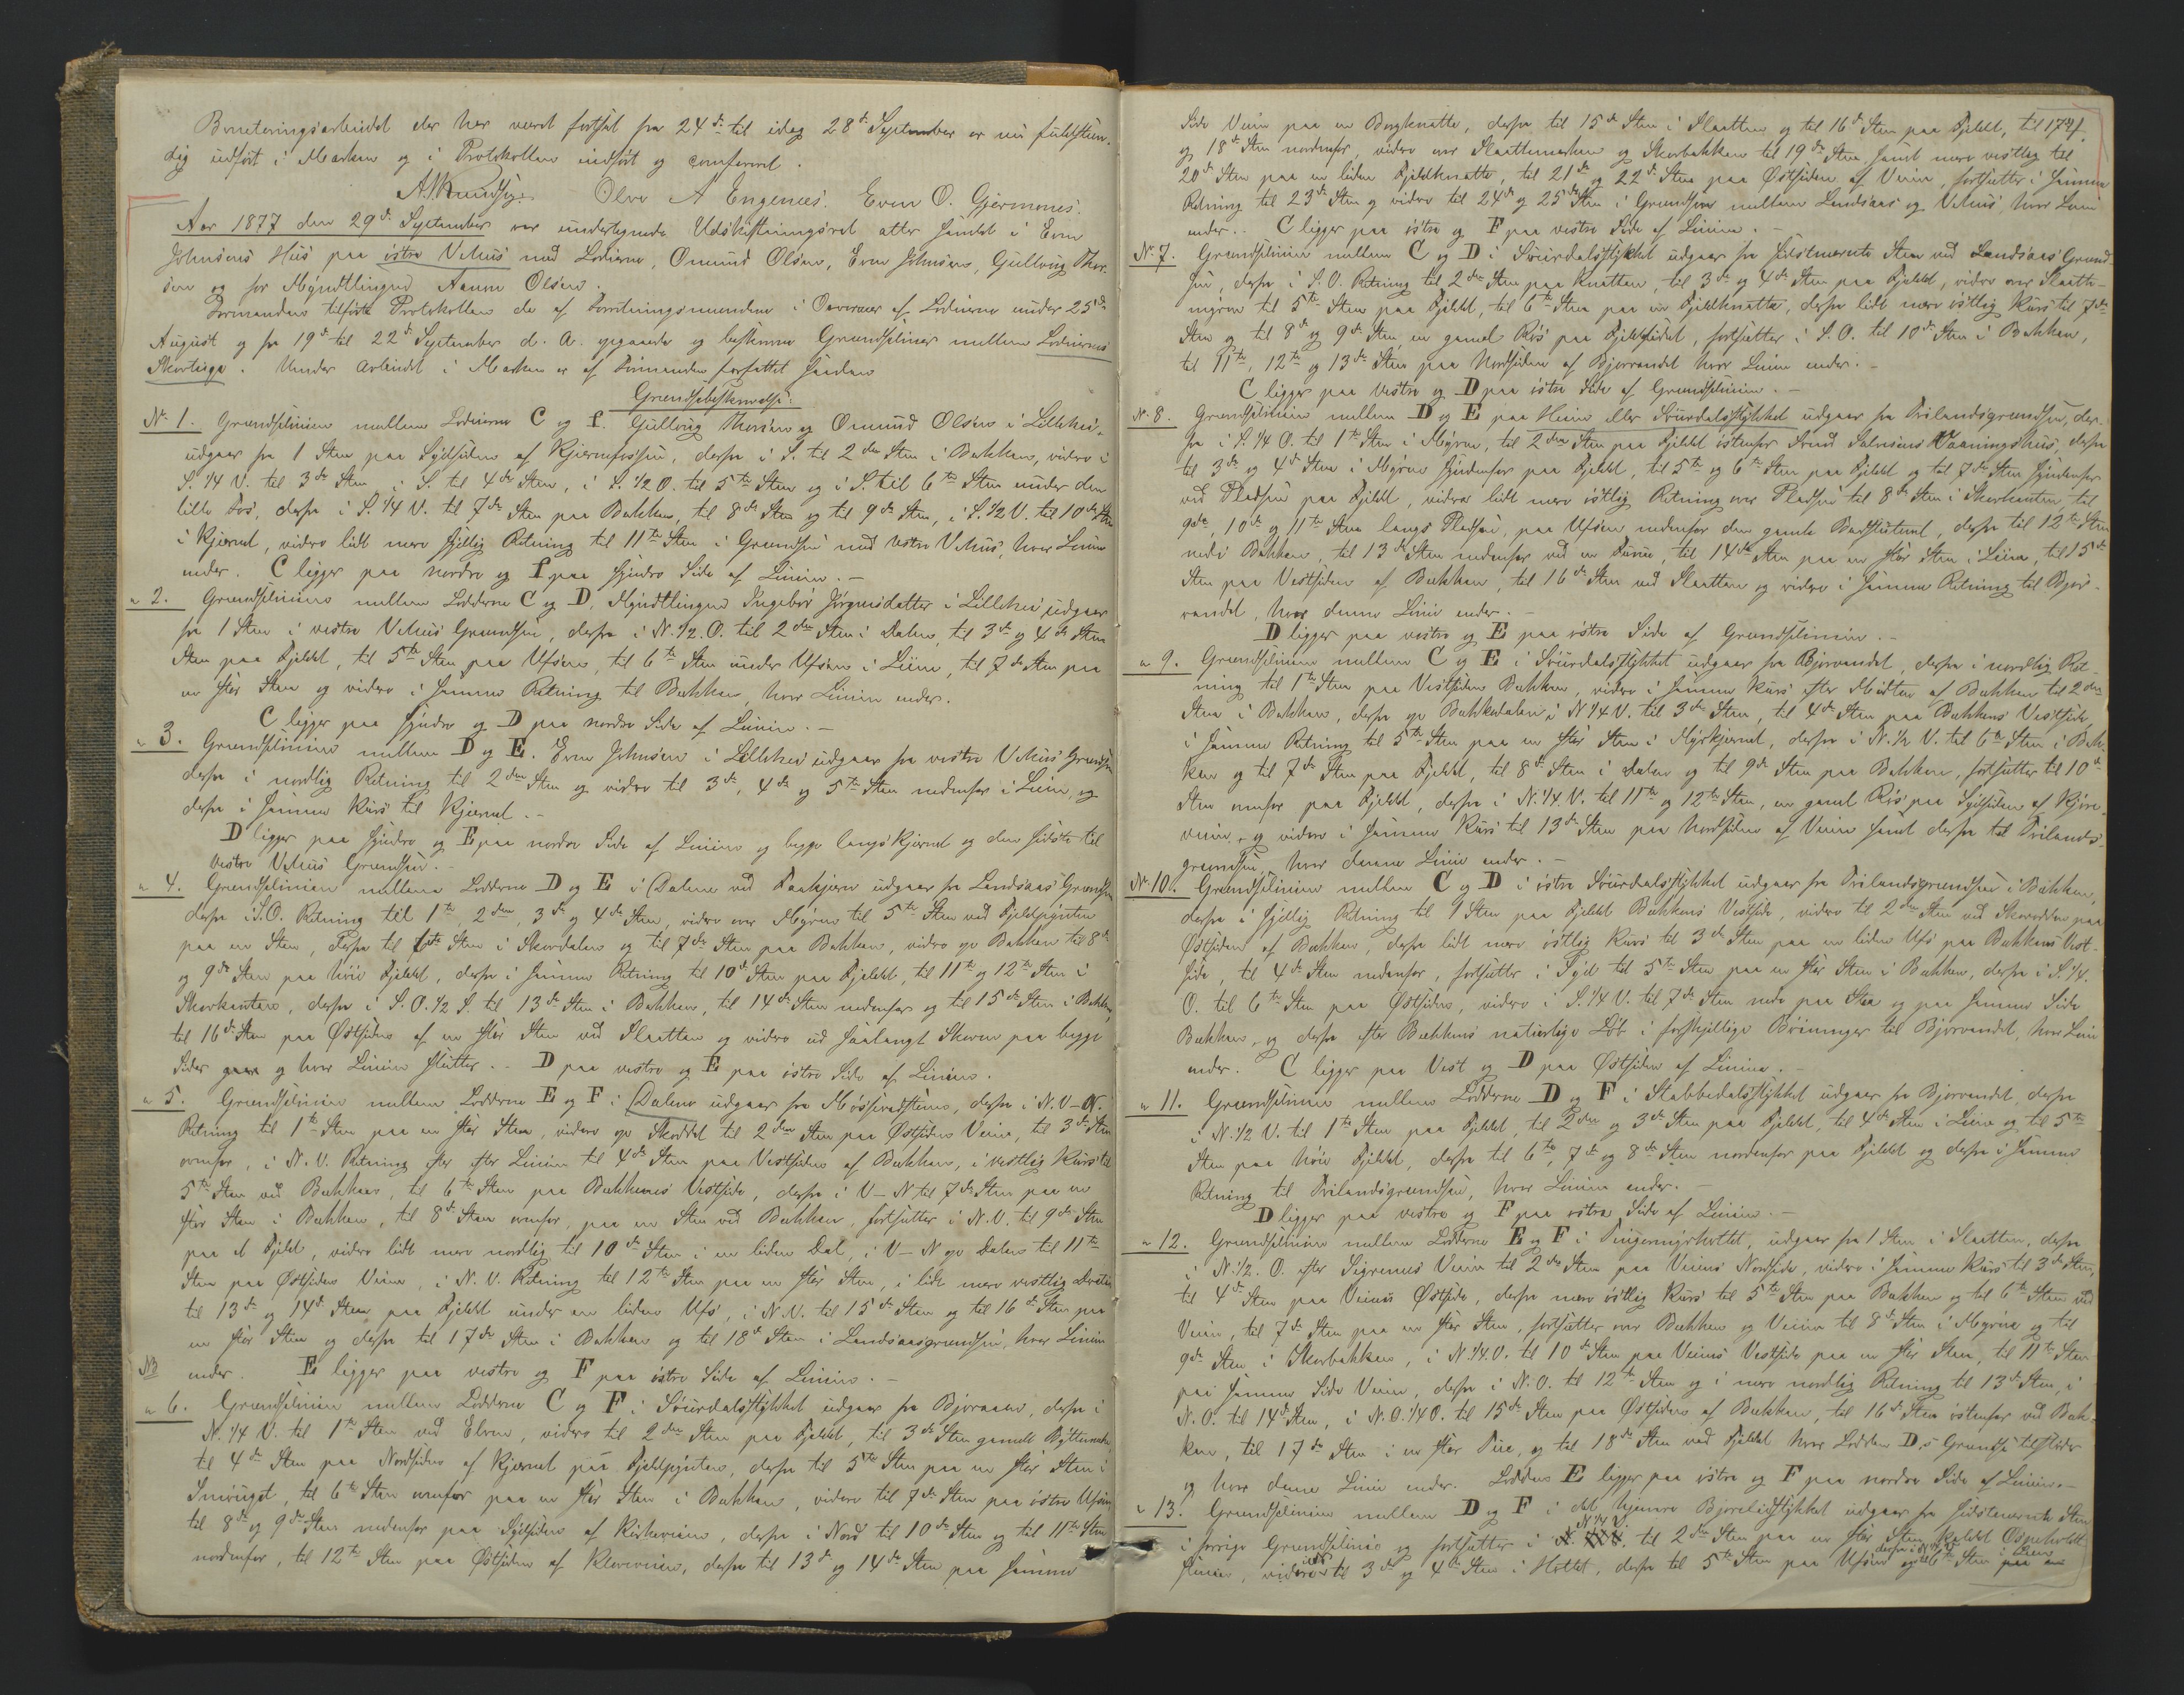 Boneteringsarbeidet der har været fortsat fra 24de til idag 28de September er nu fuldstæn-
dig udført i Marken og i Protokollen indført og confereret.
Olver A Engenæs. Even O. Gjermones.
Aar 1877 den 29de September var undertegnede Udskiftningsret atter samlet i Even
Johnsens Hus paa østre Vehus med Lodeierne, Omund Olsen, Even Johnsen, Gullovig Thor-
sen og for Myndtlingen Aanon Olsen.
Formanden tilførte Protokollen de af Forretningsmændene i Overvær af Lodeierne under 25de
August og fra 19de til 22de September d. A. opgaaede og beskrevne Grændselinier mellem Lodeiernes
Skovteige. Under Arbeidet i Marken er af Formanden forfattet saadan
Grændsebeskrivelse:
No 1. Grændselinien mellem Lodeierne C og f. Gullovig Thorsen og Omund Olsen i Lillehei,
udgaar fra 1 Sten paa Sydsiden af Kjernefossen, derfra i S. til 2den Sten i Bakken, videre i
S. 1/4 V. til 3de Sten i S. til 4de Sten, i S. 1/2 O. til 5te Sten og i S. til 6te Sten under den
lille Fos, derfra i S. 1/4 V. til 7de Sten paa Bakken, til 8de Sten og til 9de Sten, i S. 1/2 V. til 10de Sten
i Kjernet, videre lidt mere sydlig Retning til 11te Sten i Grændsen med vestre Vehus, hvor Linien
ender. C ligger paa nordre og f paa søndre Side af Linien.-
" 2. Grændseliniens mellem Lodderne C og D, Myndtlingen Ingebor Jørgensdatter i Lillehei udgaar
fra 1 Sten i vestre Vehus Grændsen, derfra i N. 1/2. O. til 2den Sten i Dalen, til 3de og 4de Sten
Sten paa Fjeldet, til 5te Sten paa Ufsen, til 6te Sten under Ufsen i Liene, til 7de Sten paa
en stor Sten og videre i samme Retning til Bækken, hvor Linien ender.
C ligger paa søndre og D paa nordre Side af Linien.-
" 3. Grændselinien mellem D og E. Even Johnsen i Lillehei udgaar fra vestre Vehus Grændsen
derfra i nordlig Retning til 2den Sten og videre til 3de, 4de og 5te Sten nedenfor i Liene, og
derfra i samme Kurs til Kjernet.-
D ligger paa søndre og E paa nordre Side af Linien og begge langs Kjernet og den sidste til
vestre Vehus Grændsen.-
" 4. Grændselinien mellem Lodderne D og E i Dalene ved Paakjern udgaar fra Landsaas Grændsen
derfra i S.O. Retning til 1te, 2den, 3de og 4de Sten, videre over Myren til 5te Sten ved Fjeldpynten
paa en Sten, derfra til 6te Sten i Skordalen og til 7de Sten paa Bakken, videre op Bakken til 8de
og 9de Sten paa høie Fjeldet, derfra i samme Retning til 10de Sten paa Fjeldet, til 11te og 12te Sten i
Skorkanten, derfra i S.O. 1/2 S. til 13de Sten i Bakken, til 14de Sten nedenfor og til 15de Sten i Bakken,
til 16de Sten paa Østsiden af en stor Sten ved Slaatten og videre ud saalangt Skoven paa begge
Sider gaar og hvor Linien slutter.- D paa vestre og E paa østre Side af Linien.
" 5. Grændselinien mellem Lodderne E og F i Dalene udgaar fra Mossevadstene, derfra i N.V - N.
Retning til 1te Sten paa en stor Sten, videre op Skordet til 2den Sten paa Østsiden Veien, til 3de Sten
ovenfor, i N.V. Retning efter Linien til 4de Sten paa Vestsiden af Bækken, i vestlig Kurs til
5te Sten ved Bækken, til 6te Sten paa Bækkenes Vestside, derfra i V - N til 7de Sten paa en
stor Sten i Bækken, til 8de Sten ovenfor, paa en Sten ved Bækken, fortsætter i N.V. til 9de Sten
paa et Fjeld, videre lidt mere nordlig til 10de Sten i en liden Dal, i V - N op Dalen til 11te
Sten paa Østsiden Veien, i N.V. Retning til 12te Sten paa en stor Sten, i lidt mere vestlig
til 13de og 14de Sten paa Fjeldet under en liden Ufs, i N.V. til 15de Sten og til 16de Sten paa
en stor Sten og derfra til 17de Sten i Bakken og til 18de Sten i Landsaasgrændsen, hvor Linien
ender. E ligger paa vestre og F paa østre Side af Linien.-
" 6. Grændselinien mellem Lodderne C og F i Suurdalsstykket udgaar fra Bjoraaen, derfra i
N. 1/4 V. til 1te Sten ved Elven, videre til 2den Sten paa Fjeldet, til 3de Sten gamle Byttemærke,
til 4de Sten paa Nordsiden af Kjernet paa Fjeldpynten, derfra til 5te Sten paa en stor Sten i
Snevuget, til 6te Sten ovenfor paa en stor Sten i Bækken, videre til 7de Sten paa østre Ufsen,
til 8de og 9de Sten nedenfor paa Sydsiden af Kirkeveien, derfra i Nord til 10de Sten og til 11te Sten
nordenfor, til 12te Sten paa Østsiden af Kleveveien, derfra til 13de og 14de Sten paa samme
Side Veien paa en Bergknatte, derfra til 15de Sten i Slaatten og til 16de Sten paa Fjeldet, til 17de
og 18de Sten nordenfor, videre over Slaattemarken og Skorbakken til 19de Sten samt mere vestlig til
20de Sten paa en liden Fjeldknatte, til 21de og 22de Sten paa Østsiden af Veien, fortsætter i samme
Retning til 23de Sten og videre til 24de og 25de Sten i Grændsen mellem Landsaas og Vehus, hvor Linien
ender.- C ligger paa østre og F paa vestre Side af Linien.-
No 7. Grændselinien mellem C og D i Suurdalsstykket udgaar fra sidstnævnte Sten ved Landsaas Grænd-
sen, derfra i S.O. Retning til 2den Sten paa Knatten, til 3de og 4de Sten paa Fjeldet, videre over Slaatte-
myren til 5te Sten paa Fjeldet, til 6te Sten paa en Fjeldknatte, derfra lidt mere østlig Kurs til 7de
Sten og til 8de og 9de Sten en gamel Røs paa Fjeldet, fortsætter i S.O. til 10de Sten i Bakken,
til 11te, 12te og 13de Sten paa Nordsiden af Bjorvandet hvor Linien ender.-
C ligger paa vestre og D paa østre Side af Grændselinien.-
No 8. Grændselinien mellem D og E paa Heien eller Suurdalsstykket udgaar fra Trilandsgrændsen, der-
fra i S. 1/4 O. til 1te Sten i Myren, til 2den Sten paa Fjeldet østenfor Arnd Salvesens Vaaningshus, derfra
til 3de og 4de Sten i Myren søndenfor paa Fjeldet, til 5te og 6te Sten paa Fjeldet og til 7de Sten søndenfor
ved Pladsen paa Fjeldet, videre lidt mere østlig Retning over Pladsen til 8de Sten i Skorkanten, til
9de, 10de og 11te Sten langs Pladsen, paa Ufsen nedenfor den gamle Badstuetomt, derfra til 12te Sten
nede i Bakken, til 13de Sten nedenfor ved en Furu, til 14de Sten paa en stor Sten i Liene, til 15de
Sten paa Vestsiden af Bækken, til 16de Sten ved Slaatten og videre i samme Retning til Bjor-
vandet, hvor denne Linie ender.-
D ligger paa vestre og E paa østre Side af Grændselinien.-
" 9. Grændselinien mellem C og E i Suurdalsstykket udgaar fra Bjorvandet, derfra i nordlig Ret-
ning til 1te Sten paa Vestsiden Bækken, videre i samme Kurs efter Midten af Bækken til 2den
Sten i Bakken, derfra op Bækkedalen i N 1/4 V. til 3de Sten, til 4de Sten paa Bækkens Vestside,
i samme Retning til 5te Sten paa en stor Sten i Myrkjernet, derfra i N. 1/2 V. til 6te Sten i Bæk-
ken og til 7de Sten paa Fjeldet, til 8de Sten i Dalen og til 9de Sten paa Bakken, fortsætter til 10de
Sten ovenfor paa Fjeldet, derfra i N. 1/4. V. til 11te og 12te Sten, en gamel Røs paa Sydsiden af Kjøre-
veien, og videre i samme Kurs til 13de Sten paa Nordsiden af Veien samt derfra til Trilands-
grændsen, hvor denne Linie ender.-
No 10. Grændselinien mellem C og D i østre Suurdalsstykket udgaar fra Trilandsgrændsen i Bækken,
derfra i sydlig Retning til 1 Sten paa Fjeldet Bækkens Vestside, videre til 2den Sten ved Skorodden paa
Østsiden af Bækken, derfra lidt mere østlig Kurs til 3de Sten paa en liden Ufs paa Bækkens Vest-
side, til 4de Sten nedenfor, fortsætter i Syd til 5te Sten paa en stor Sten i Bækken, derfra i S. 1/4.
O. til 6te Sten paa Østsiden, videre i S. 1/4 V. til 7de Sten nede paa Slaa og paa samme Side
Bækken, og derfra efter Bækkens naturlige Løb i forskjellige Bøininger til Bjorvandet, hvor Linien
ender. C ligger paa Vest og D paa Østsiden af Linien.-
" 11. Grændselinien mellem Lodderne D og F i Stabbedalsstykket udgaar fra Bjorvandet, derfra
i N. 1/2 V. til 1te Sten paa Fjeldet, til 2den og 3de Sten paa Fjeldet, til 4de Sten i Liene og til 5te
Sten paa høie Fjeldet, derfra til 6te, 7de og 8de Sten nordenfor paa Fjeldet og derfra i samme
Retning til Trilandsgrændsen, hvor Linien ender.-
D ligger paa vestre og F paa østre Side af Linien.-
" 12. Grændselinien mellem Lodderne E og F i Tingemyrholtet, udgaar fra 1 Sten i Slaatten, derfra
i N. 1/2. O. efter Veien til 2den Sten paa Veiens Nordside, videre i samme Kurs til 3de Sten,
til 4de Sten paa Veiens Østside, derfra mere østlig Kurs til 5te Sten paa Bakken og til 6te Sten ved
Veien, til 7de Sten paa en stor Sten, fortsætter over Bækken og Veien til 8de Sten i Myren og til
9de Sten i Skorbakken, i N. 1/4. O. til 10de Sten paa Veiens Vestside paa en stor Sten, til 11te Sten
paa samme Side Veien, derfra i N.O. til 12te Sten og i mere nordlig Retning til 13de Sten, i
N.O. til 14de Sten, i N.O. 1/4 O. til 15de Sten paa Østsiden af Bækken, til 16de Sten østenfor ved Bæk-
ken, til 17de Sten i en stor Ture, og til 18de Sten ved Fjeldet hvor Lodden D,s Grændse tilstøder
og hvor denne Linie ender. Loddens E ligger paa østre og F paa nordre Side af Linien.-
" 13. Grændselinien mellem D og F i det hjemre Bjorelidstykket udgaar fra sidstnævnte Sten
i forrige Grændselinie og fortsætter i N 1/4 V til 2den Sten paa en stor Sten kaldet Ospeholt-
stenen, videre til 3de og 4de Sten i Holtet, derfra til 5te Sten paa Ufsen og til 6te Sten paa en